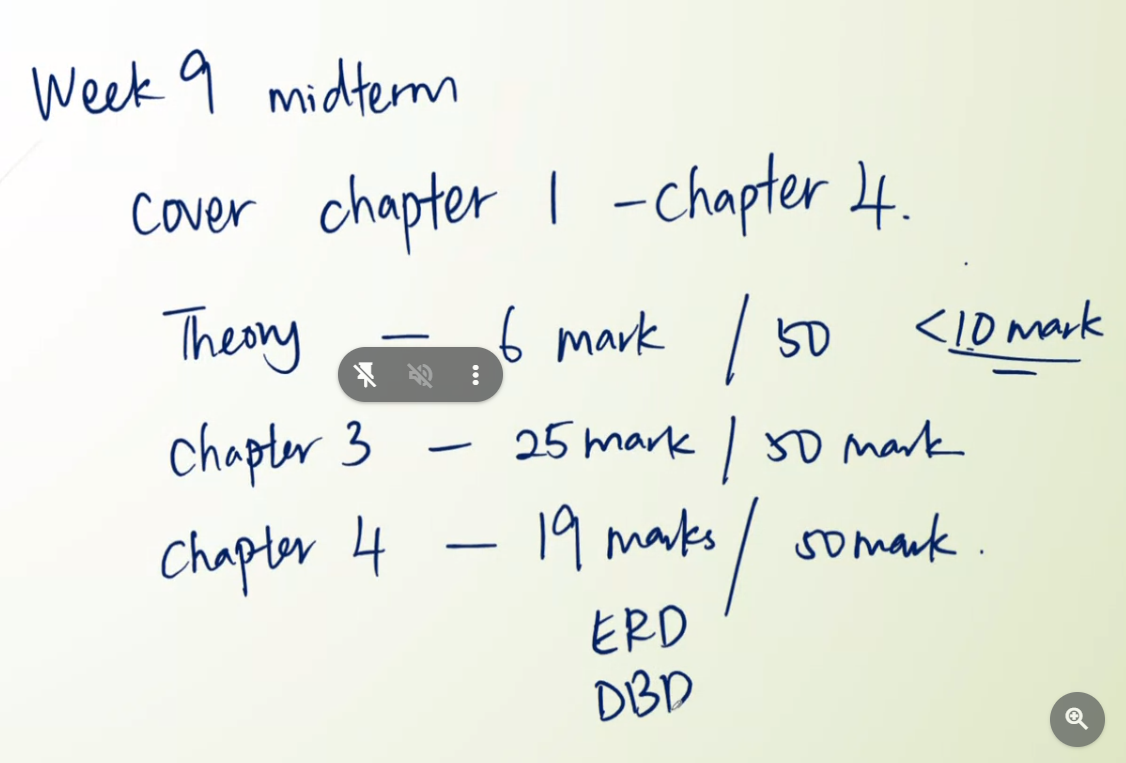 Week 9 midterm
cover chapter 1 - chapter 4.
Theory — 6 mark / 50 <10 mark
chapter 3 — 25 mark / 50 mark
chapter 4 — 19 marks / 50 mark.
ERD
DBD